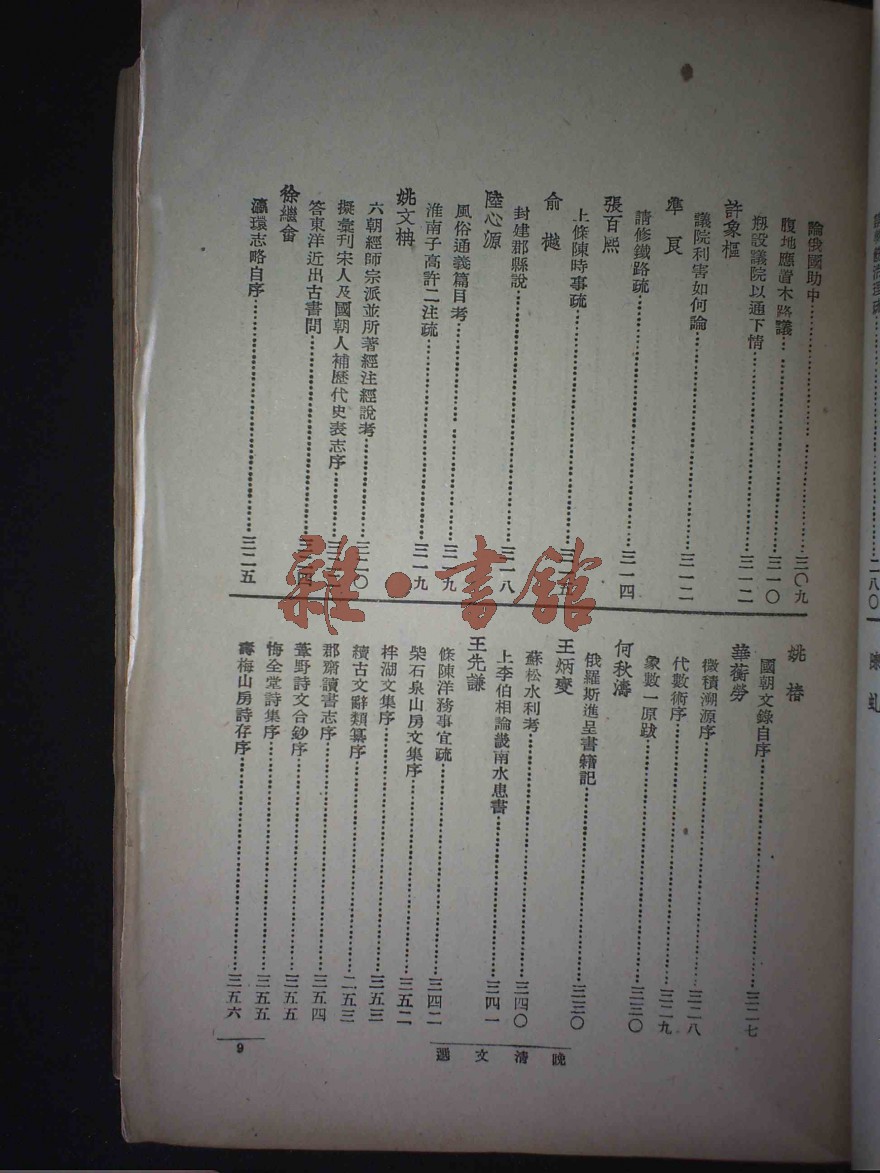 論俄國助中……三〇九
腹地應置木路議……三一〇
剏設議院以通下情……三一二
許象樞
議院利害如何論……三一二
準良
請修鐵路疏……三一四
張百熙
上條陳時事疏……三一五
俞樾
封建郡縣說……三一八
陸心源
風俗通義篇目考……三一九
淮南子高許二注疏……三一九
姚文枬
六朝經師宗派並所著經注經說考……三二〇
擬彙刊宋人及國朝人補歷代史表志序……三二
答東洋近出古書問……三二四
徐繼畬
瀛環志略自序……三二五
姚椿
國朝文錄自序……三二七
華蘅芳
微積溯源序……三二八
代數術序……三二九
象數一原跋……三三〇
何秋濤
俄羅斯進呈書籍記……三三〇
王炳燮
蘇松水利考……三四〇
上李伯相論畿南水患書……三四一
王先謙
條陳洋務事宜疏……三四二
柴石泉山房文集序……三五二
柈湖文集序……三五三
續古文辭類纂序……二五三
郡齋讀書志序……三五四
葦野詩文合鈔序……三五五
悔全堂詩集序……三五五
壽梅山房詩存序……三五六
晚清文選
9
二八〇
雜·書館